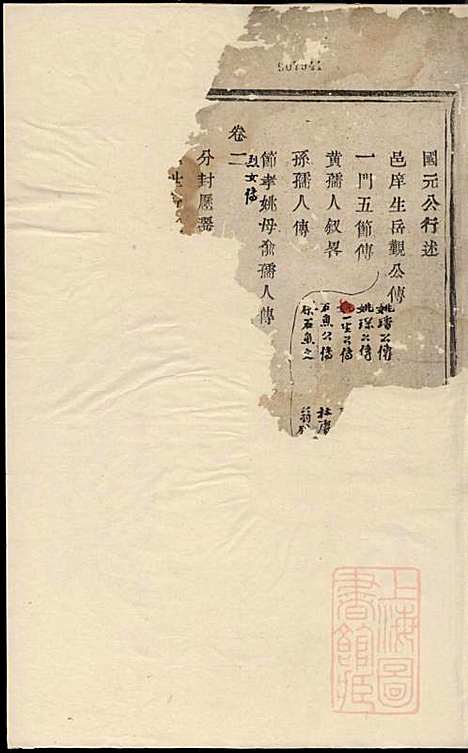 國元公行述
邑庠生岳觀公傳
一門五節傳
黃孺人敘畧
孫孺人傳
節孝姚母俞孺人傳
烈女傳
卷二
分封歷
姚璠公傳
姚琛公傳
一生公傳
石魚公傳
石魚之
上海圖
書館藏